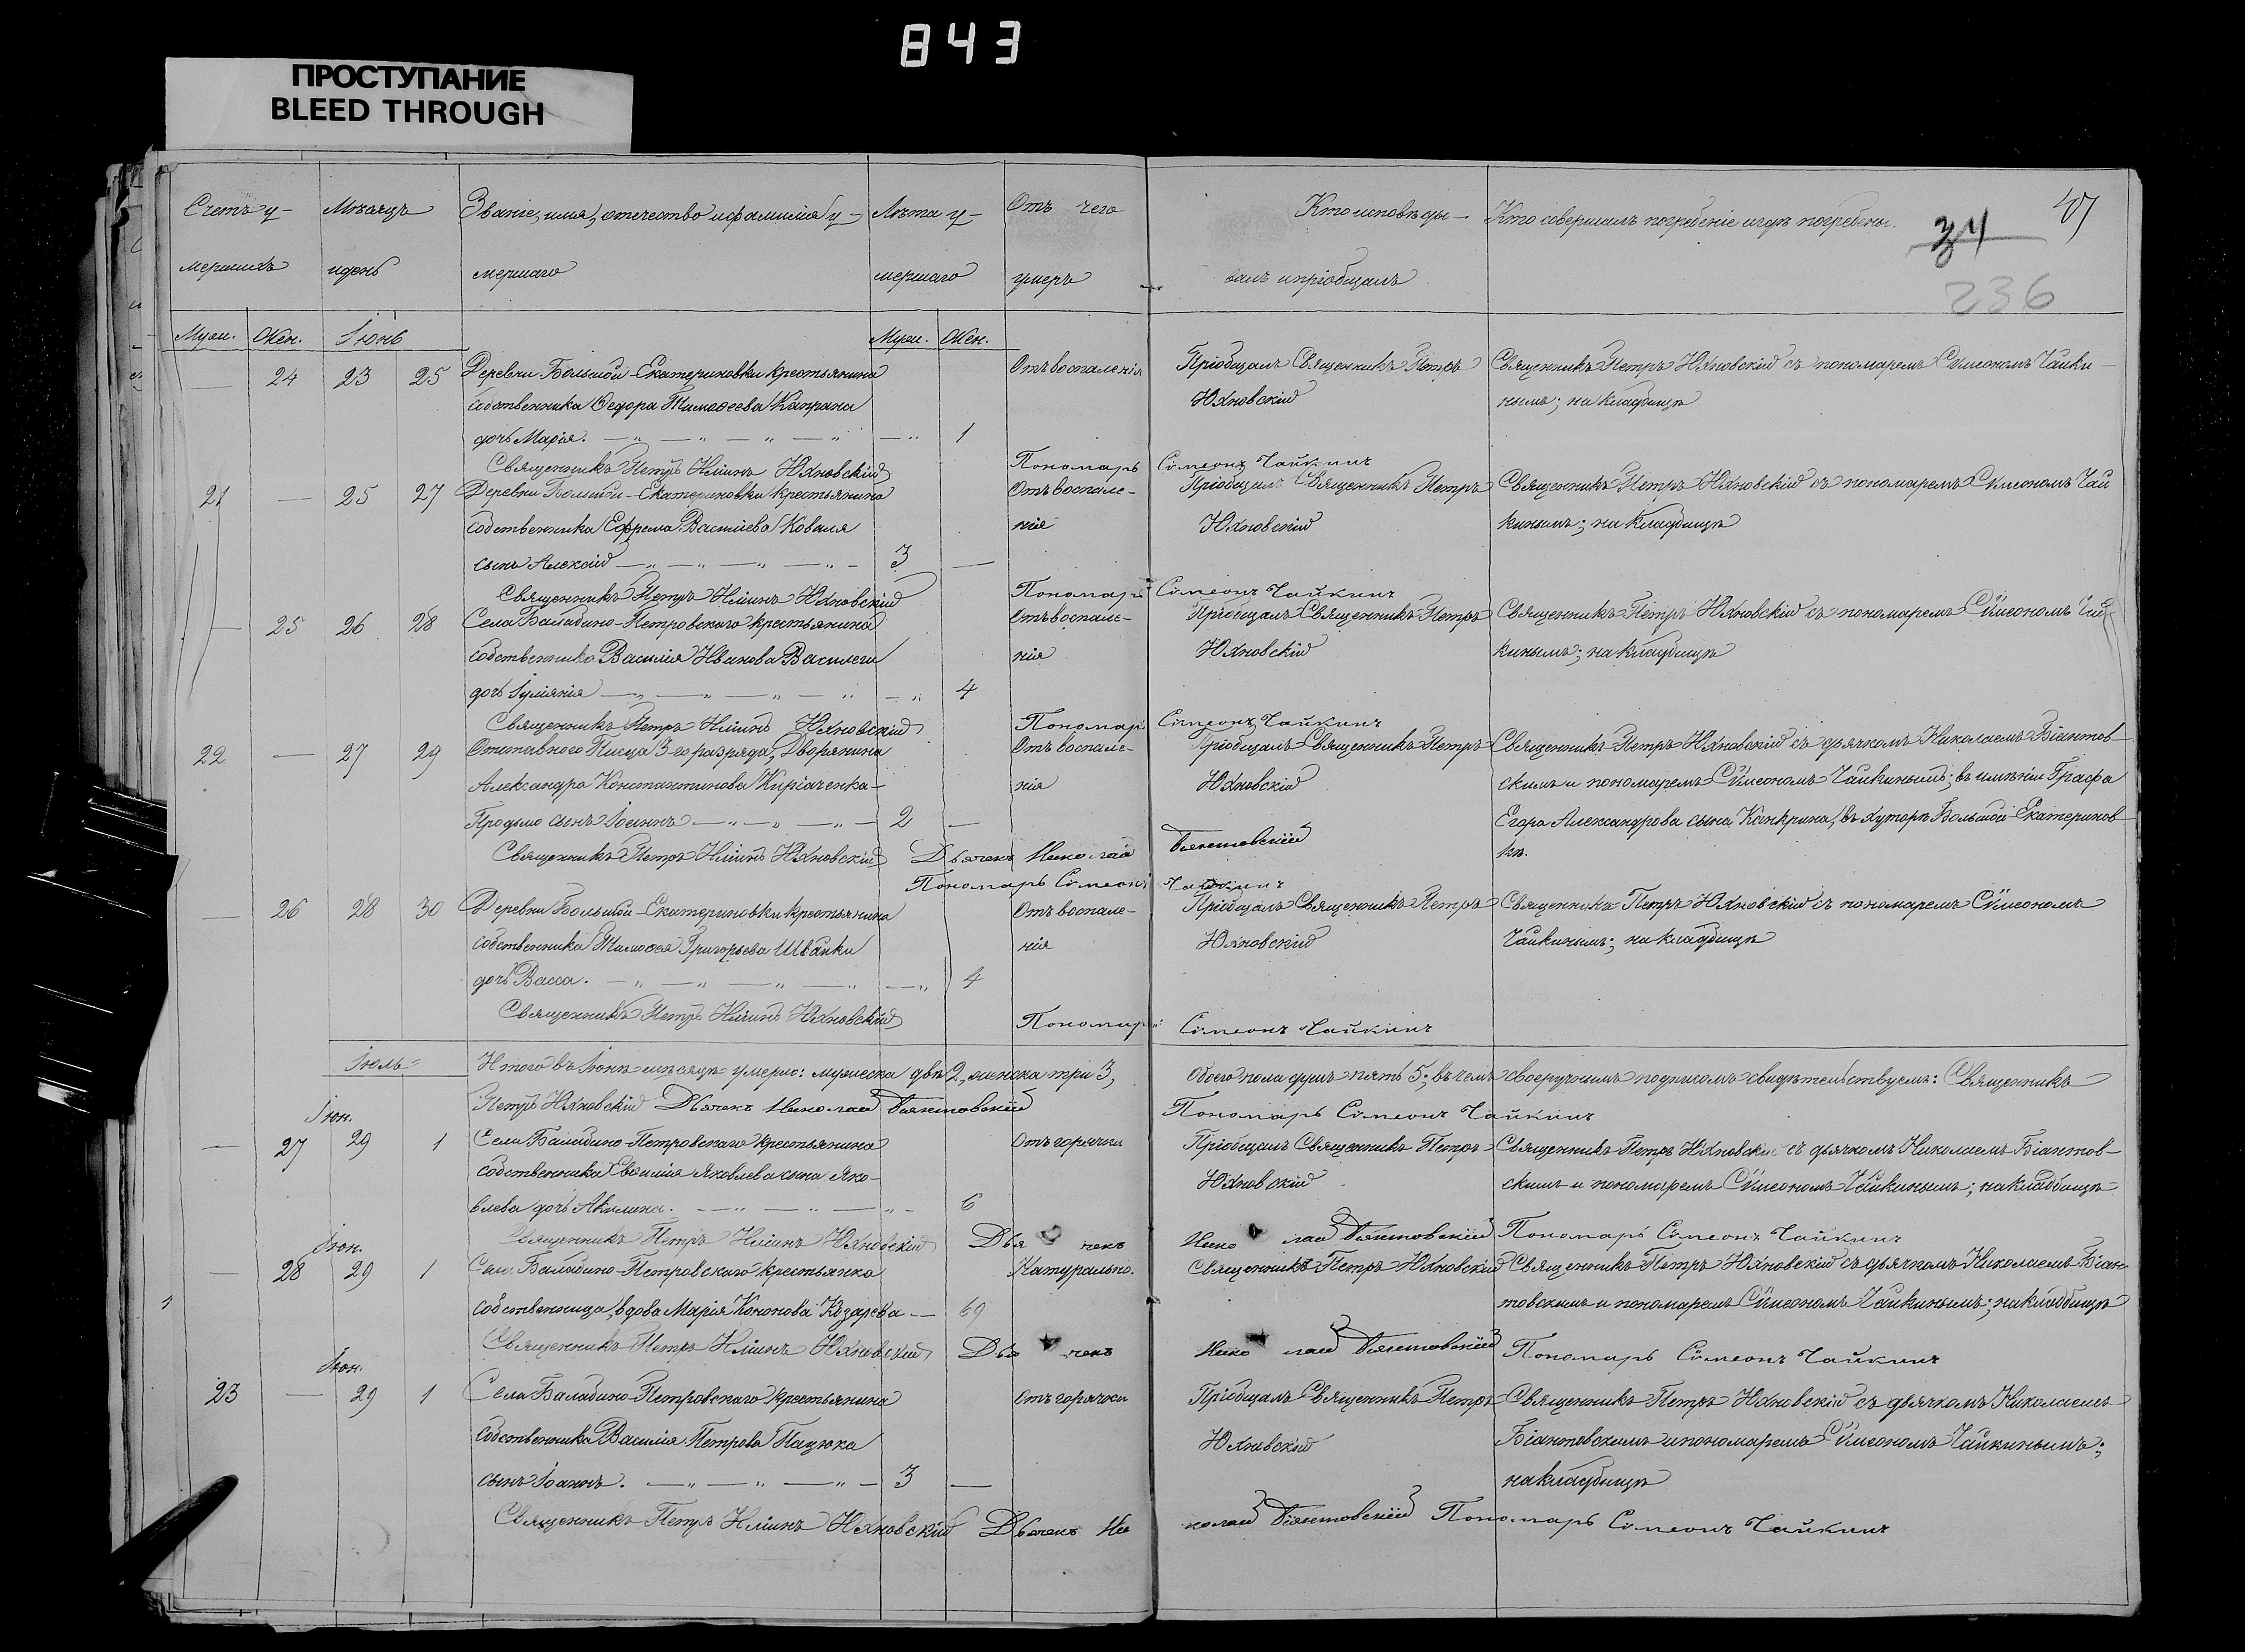 843
ПРОСТУПАНИЕ
BLEED THROUGH
Счетъ у-
мершихъ
Мѣсяцъ
и день
Званіе, имя, отечество и фамилія у-
мершаго
Лѣта у-
мершаго
Отъ чего
умеръ
Кто исповѣды-
валъ и пріобщалъ
Кто совершалъ погребеніе и гдѣ погребены.
34
47
236
Муж. Жен. Іюнь Муж. Жен.
— 24 23 25 Деревни Большой-Екатериновки крестьянина Отъ воспаленія Пріобщалъ Священникъ Петръ Священникъ Петръ Юхновскій съ пономаремъ Сѵмеономъ Чайки-
собственника Ѳедора Тимоѳеева Капрана Юхновскій нымъ; на кладбищѣ
дочь Марія. — 1
Священникъ Петръ Юхновскій Пономарь Сѵмеонъ Чайкинъ
21 — 25 27 Деревни Большой-Екатериновки крестьянина Отъ воспале- Пріобщалъ Священникъ Петръ Священникъ Петръ Юхновскій съ пономаремъ Сѵмеономъ Чай
собственника Ефрема Васильева Коваля нія Юхновскій кинымъ; на кладбищѣ
сынъ Алексій 3 —
Священникъ Петръ Юхновскій Пономарь Сѵмеонъ Чайкинъ
— 25 26 28 Села Баладино-Петровскаго крестьянина Отъ воспале- Пріобщалъ Священникъ Петръ Священникъ Петръ Юхновскій съ пономаремъ Сѵмеономъ Чай
собственника Василія Иванова нія Юхновскій кинымъ; на кладбищѣ
дочь Іуліанія — 4
Священникъ Петръ Юхновскій Пономарь Сѵмеонъ Чайкинъ
22 — 27 29 Отставного Писца 3-го разряда, Дворянина Отъ воспале- Пріобщалъ Священникъ Петръ Священникъ Петръ Юхновскій съ дьячкомъ Николаемъ Біантов-
Александра Константинова Киріаченка- нія Юхновскій скимъ и пономаремъ Сѵмеономъ Чайкинымъ; въ имѣніи Графа
сынъ Іоаннъ 2 — Егора Александрова сына Канкрина, въ хуторѣ Большой-Екатеринов
кѣ.
Священникъ Петръ Юхновскій Дьячекъ Николай Біянтовскій
Пономарь Сѵмеонъ Чайкинъ
— 26 28 30 Деревни Большой-Екатериновки крестьянина Отъ воспале- Пріобщалъ Священникъ Петръ Священникъ Петръ Юхновскій съ пономаремъ Сѵмеономъ
собственника Тимоѳея Григорьева Швайки нія Юхновскій Чайкинымъ; на кладбищѣ
дочь Васса. — 4
Священникъ Петръ Юхновскій Пономарь Сѵмеонъ Чайкинъ
Іюль Итого въ Іюнѣ мѣсяцѣ умерло: мужеска двѣ 2, женска три 3, Обоего пола душъ пять 5; въ чемъ своеручнымъ подписомъ свидѣтельствуемъ: Священникъ
Петръ Юхновскій Дьячекъ Николай Біянтовскій Пономарь Сѵмеонъ Чайкинъ
Іюн.
— 27 29 1 Села Баладино-Петровскаго крестьянина Отъ горячки Пріобщалъ Священникъ Петръ Священникъ Петръ Юхновскій съ дьячкомъ Николаемъ Біантов-
собственника Яковлева сына Яко- Юхновскій скимъ и пономаремъ Сѵмеономъ Чайкинымъ; на кладбищѣ
влева дочь Акилина. 6
Священникъ Петръ Юхновскій Дьячекъ Николай Біянтовскій Пономарь Сѵмеонъ Чайкинъ
Іюн.
— 28 29 1 Села Баладино-Петровскаго крестьянка Натурально. Священникъ Петръ Юхновскій Священникъ Петръ Юхновскій съ дьячкомъ Николаемъ Біан-
собственница, вдова Марія Кононова Козарева — 69 товскимъ и пономаремъ Сѵмеономъ Чайкинымъ; на кладбищѣ
Священникъ Петръ Юхновскій Дьячекъ Николай Біянтовскій Пономарь Сѵмеонъ Чайкинъ
Іюн.
23 — 29 1 Села Баладино-Петровскаго крестьянина Отъ горячки Пріобщалъ Священникъ Петръ Священникъ Петръ Юхновскій съ дьячкомъ Николаемъ
собственника Василія Петрова Пацюка Юхновскій Біантовскимъ и пономаремъ Сѵмеономъ Чайкинымъ;
сынъ Іоаннъ. 3 — на кладбищѣ
Священникъ Петръ Юхновскій Дьячекъ Николай Біянтовскій Пономарь Сѵмеонъ Чайкинъ